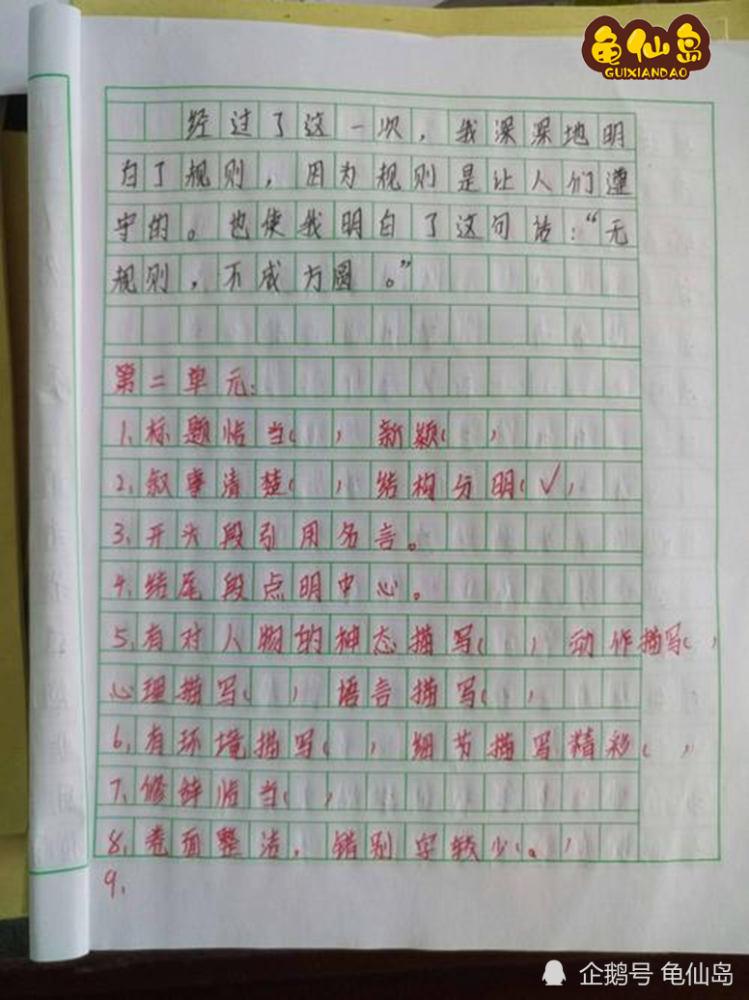 龟仙岛
GUIXIANDAO
经过了这一次，我深深地明
白了规则，因为规则是让人们遵
守的。也使我明白了这句话：“无
规则，不成方圆。”
第二单元：
1、标题恰当（ ） 新颖（ ）
2、叙事清楚（ ） 结构分明（✓）
3、开头段引用名言。
4、结尾段点明中心。
5、有对人物的神态描写（ ） 动作描写（ ）
心理描写（ ） 语言描写（ ）
6、有环境描写（ ） 细节描写精彩（ ）
7、修辞恰当（ ）
8、卷面整洁，错别字较少。）
9、
企鹅号 龟仙岛